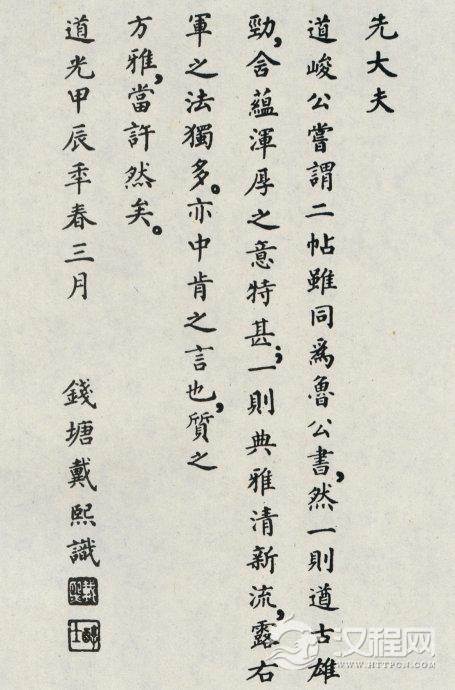 先大夫
道峻公嘗謂二帖雖同爲魯公書,然一則遒古雄
勁,含蘊渾厚之意特甚;一則典雅清新流,露右
軍之法獨多。亦中肯之言也,質之
方雅,當許然矣。
道光甲辰季春三月 錢塘戴熙識
戴熙
醇士
汉程网
WWW.HTTPCN.COM